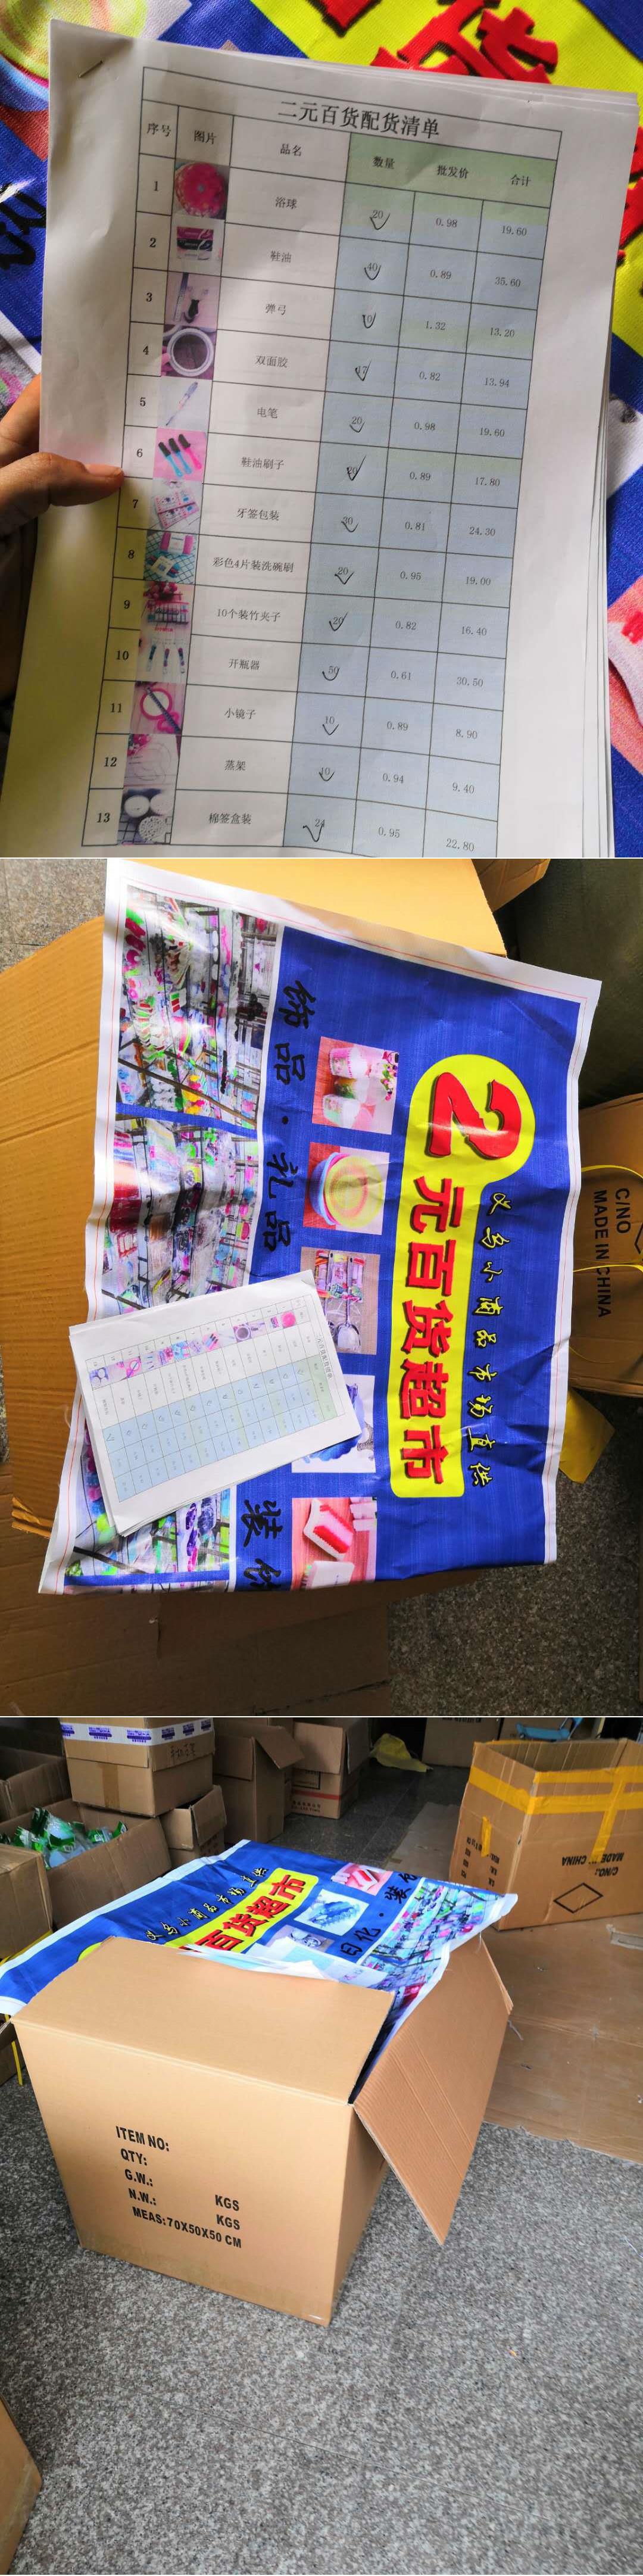 二元百货配货清单
序号 图片 品名 数量 批发价 合计
1 浴球 20 0.98 19.60
2 鞋油 40 0.89 35.60
3 弹弓 10 1.32 13.20
4 双面胶 17 0.82 13.94
5 电笔 20 0.98 19.60
6 鞋油刷子 20 0.89 17.80
7 牙签包装 30 0.81 24.30
8 彩色4片装洗碗刷 20 0.95 19.00
9 10个装竹夹子 20 0.82 16.40
10 开瓶器 50 0.61 30.50
11 小镜子 10 0.89 8.90
12 蒸架 10 0.94 9.40
13 棉签盒装 24 0.95 22.80
义乌小商品市场直供
2元百货超市
饰品·礼品
装饰
C/NO
MADE IN CHINA
义乌小商品市场直供
百货超市
日化·装饰
C/NO.:
MADE IN CHINA
ITEM NO:
QTY:
G.W.: KGS
N.W.: KGS
MEAS:70X50X50 CM